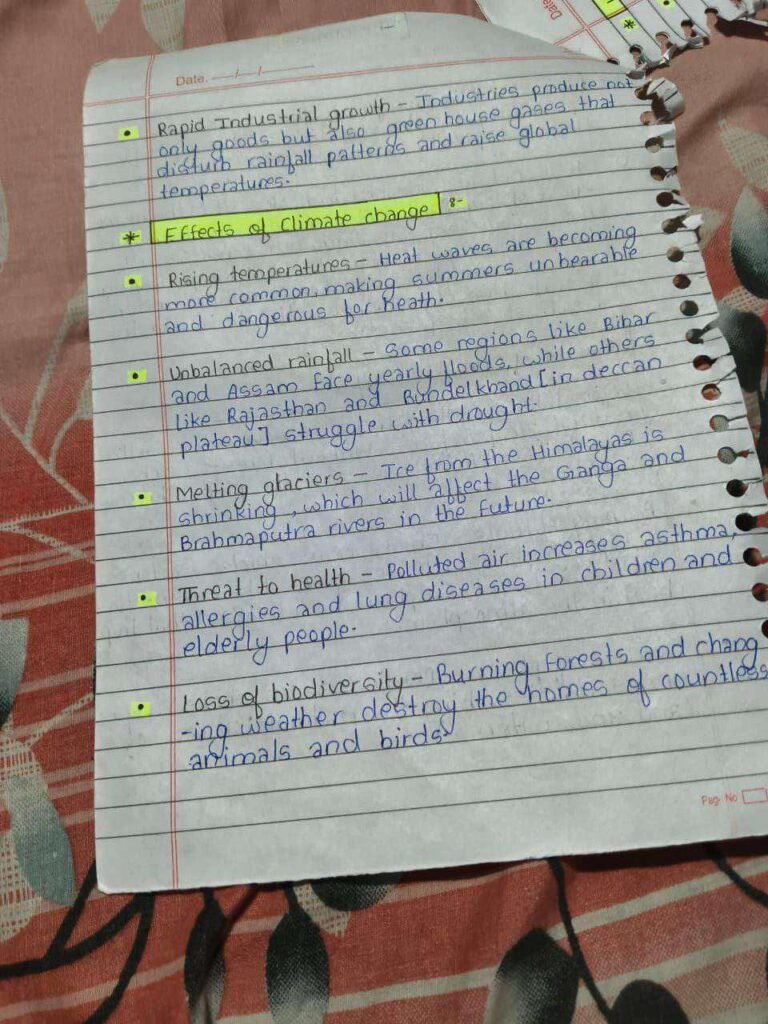 Date. __/__/____
• Rapid Industrial growth - Industries produce not
only goods but also green house gases that
disturb rainfall patterns and raise global
temperatures.
* Effects of Climate change :-
• Rising temperatures - Heat waves are becoming
more common, making summers unbearable
and dangerous for heath.
• Unbalanced rainfall - Some regions like Bihar
and Assam face yearly floods, while others
like Rajasthan and Bundelkhand [in deccan
plateau] struggle with drought.
• Melting glaciers - Ice from the Himalayas is
shrinking, which will affect the Ganga and
Brahmaputra rivers in the future.
• Threat to health - Polluted air increases asthma,
allergies and lung diseases in children and
elderly people.
• Loss of biodiversity - Burning forests and chang
-ing weather destroy the homes of countless
animals and birds.
Pag. No
Date